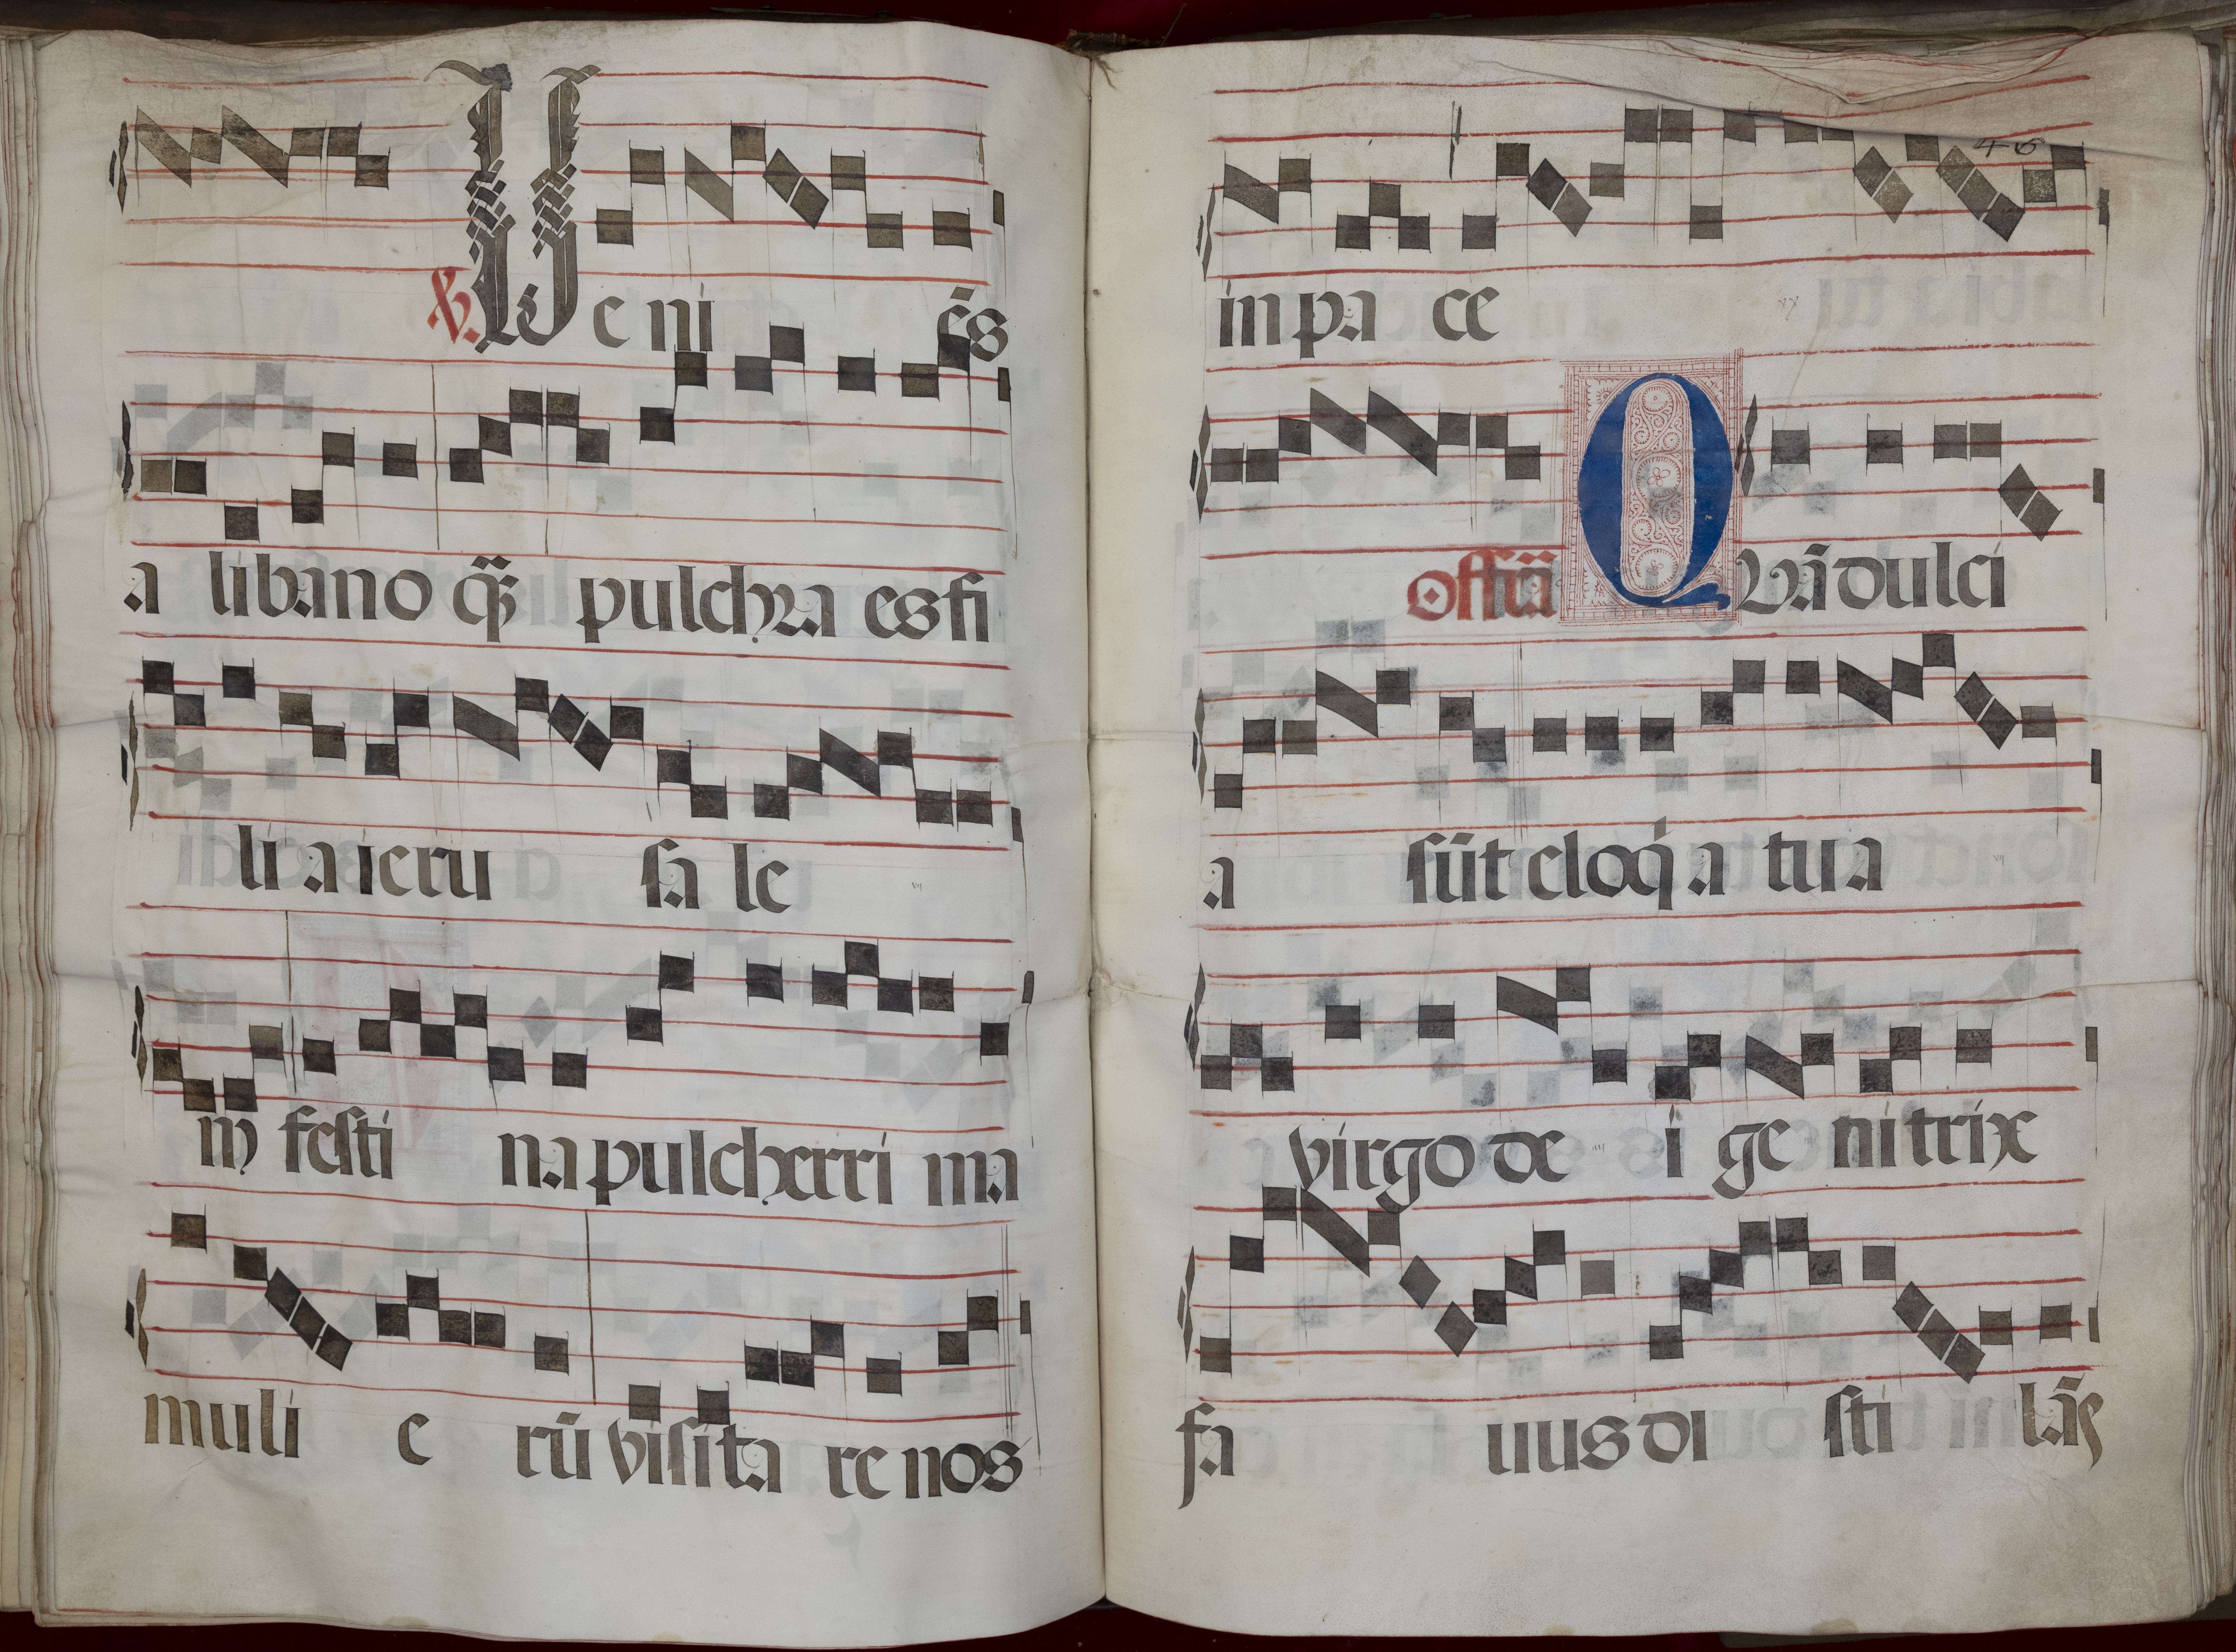 ℣. Ve ni ēs
a libano q̄ꝫ pulchra es fi
li a ieru sa le
m festi na pulcherri ma
muli e rū visita re nos
46
in pa ce
offitā Quā dulci
a sūt eloq̄ a tua
virgo de i ge nitrix
fa uus di sti lās